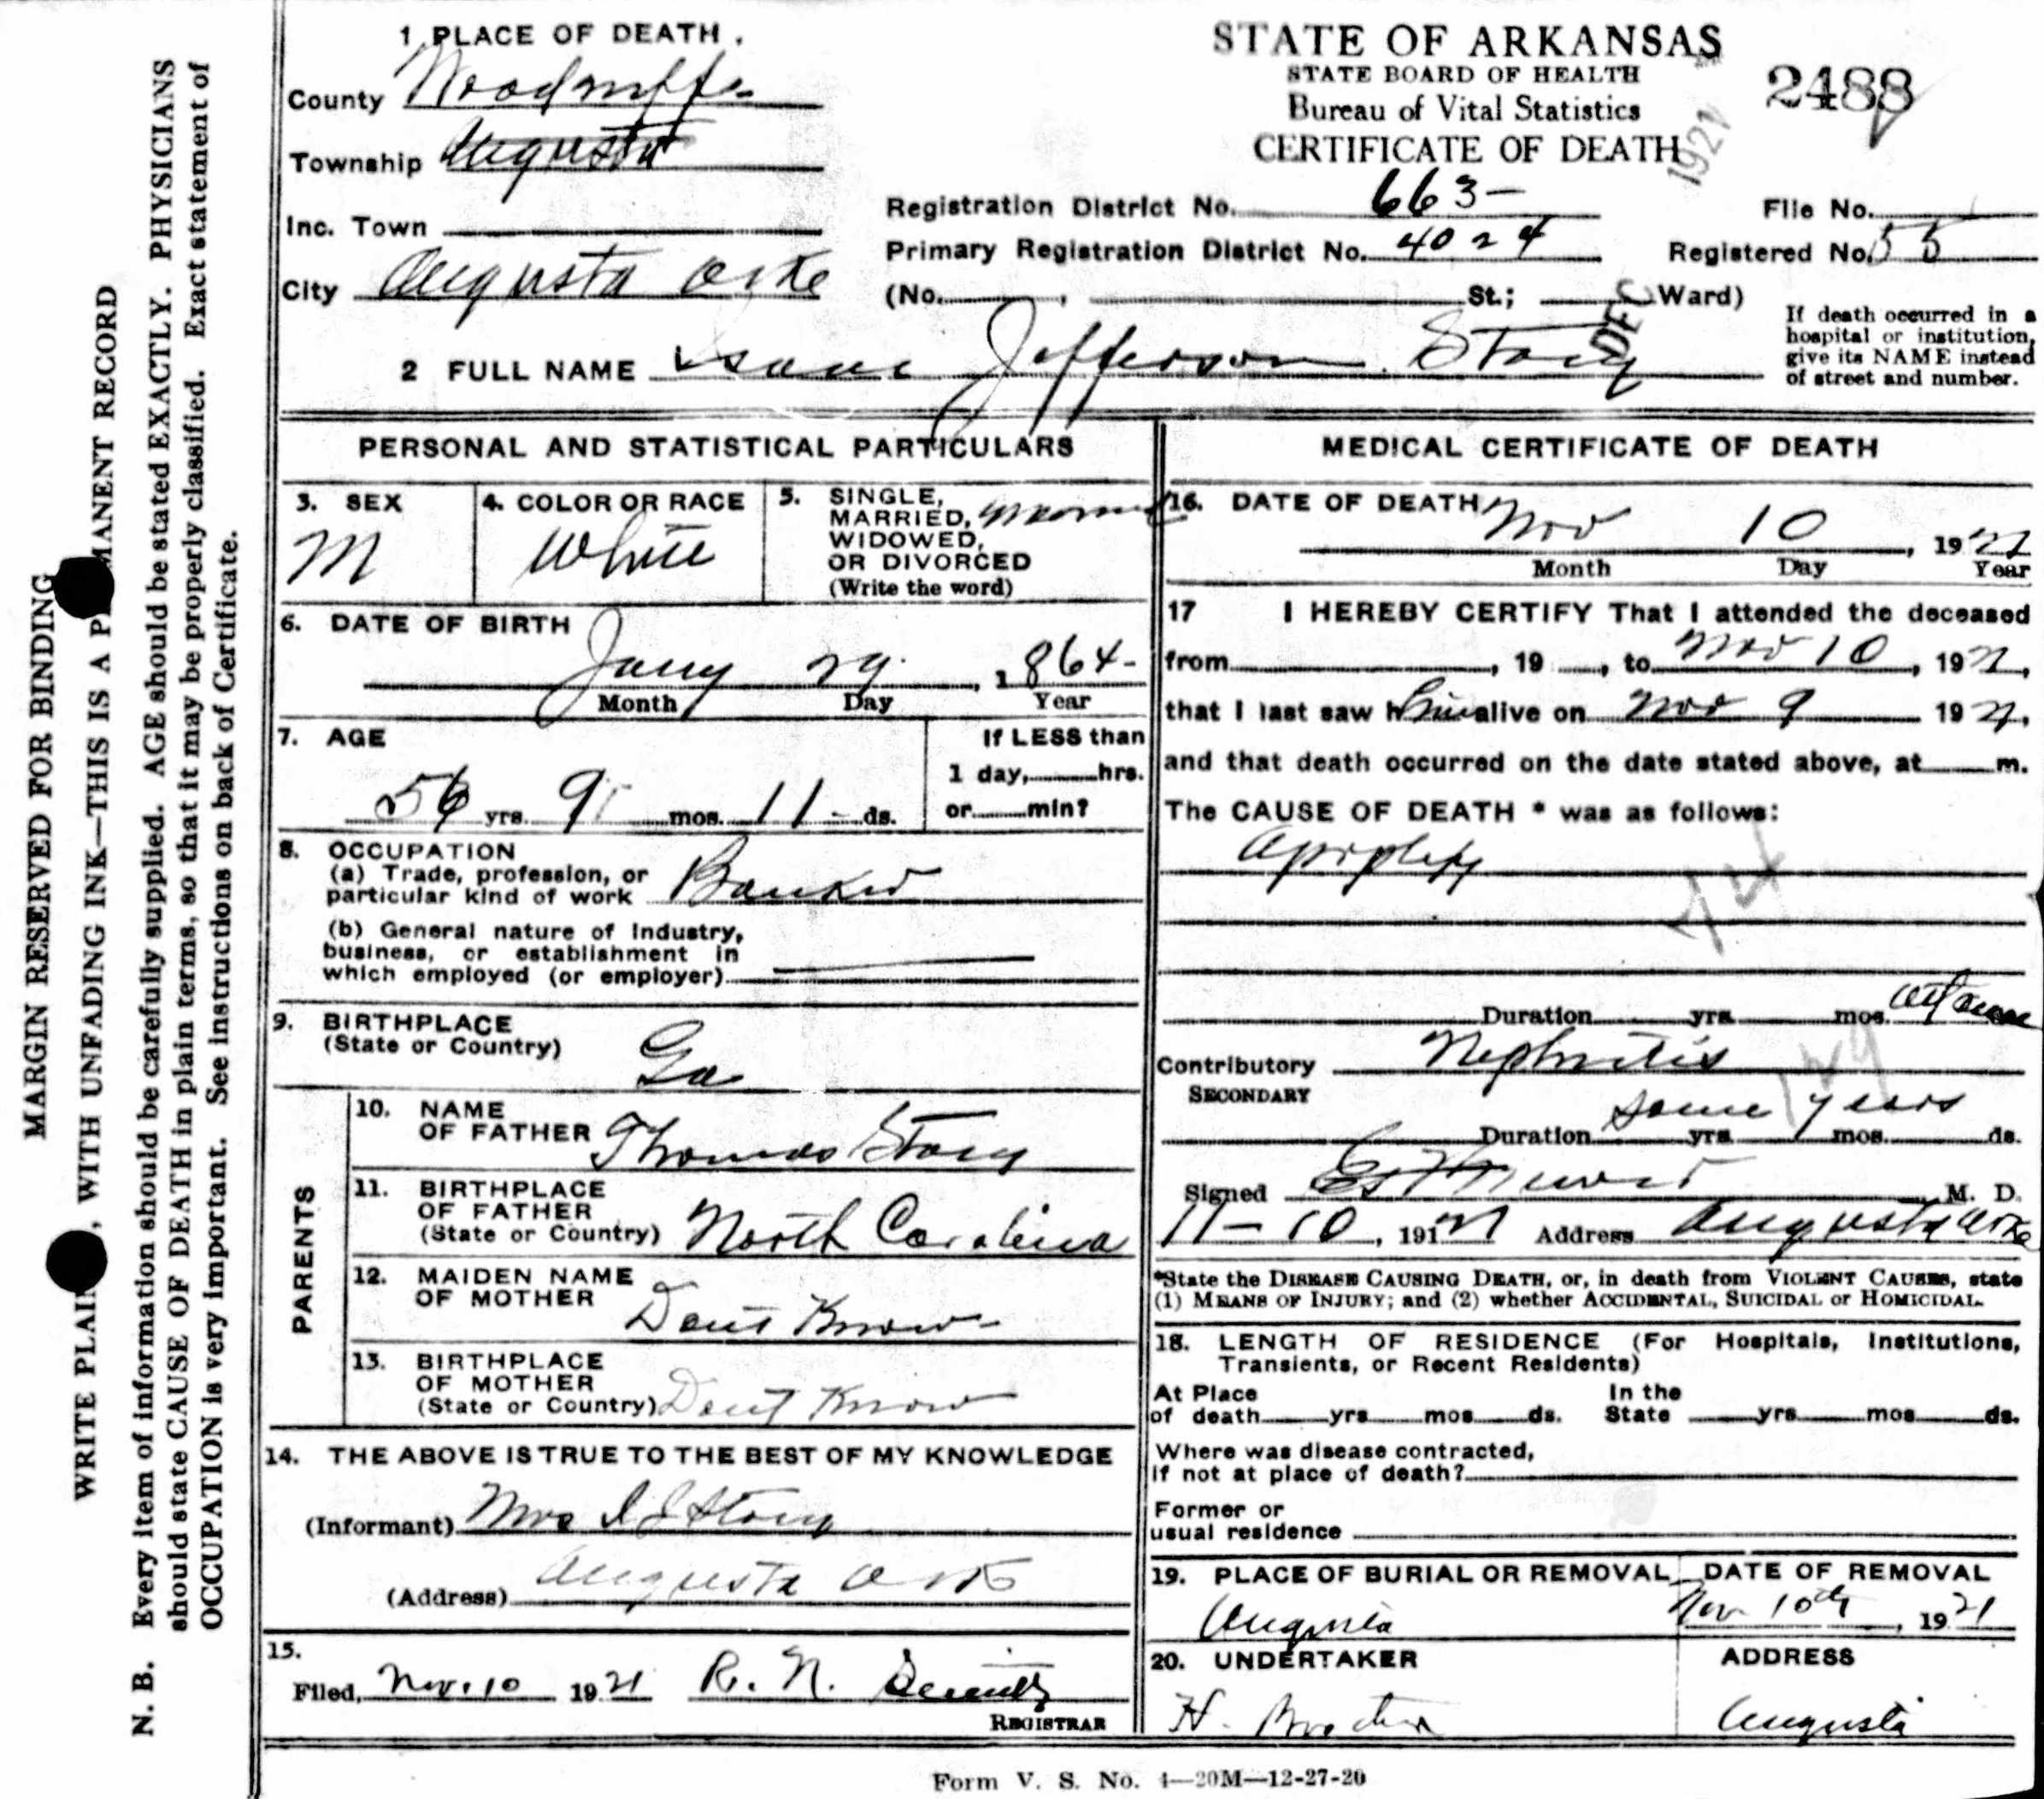 MARGIN RESERVED FOR BINDING
WRITE PLAIN , WITH UNFADING INK—THIS IS A P MANENT RECORD
N. B. Every item of information should be carefully supplied. AGE should be stated EXACTLY. PHYSICIANS
should state CAUSE OF DEATH in plain terms, so that it may be properly classified. Exact statement of
OCCUPATION is very important. See instructions on back of Certificate.
1 PLACE OF DEATH.
County Woodruff
Township Augusta
Inc. Town
City Augusta Ark
STATE OF ARKANSAS
STATE BOARD OF HEALTH
Bureau of Vital Statistics
CERTIFICATE OF DEATH
2488
1921
Registration District No. 663-
File No.
Primary Registration District No. 4024
Registered No. 55
(No. , St.; Ward)
DEC
If death occurred in a
hospital or institution,
give its NAME instead
of street and number.
2 FULL NAME Isaac Jefferson Stacy
PERSONAL AND STATISTICAL PARTICULARS
3. SEX
M
4. COLOR OR RACE
White
5. SINGLE,
MARRIED, Married
WIDOWED,
OR DIVORCED
(Write the word)
6. DATE OF BIRTH
Jany 29. , 1864-
Month Day Year
7. AGE
56 yrs. 9 mos. 11 ds.
If LESS than
1 day, hrs.
or min?
8. OCCUPATION
(a) Trade, profession, or
particular kind of work Banker
(b) General nature of Industry,
business, or establishment in
which employed (or employer)
9. BIRTHPLACE
(State or Country) Ga
PARENTS
10. NAME
OF FATHER Thomas Stacy
11. BIRTHPLACE
OF FATHER
(State or Country) North Carolina
12. MAIDEN NAME
OF MOTHER Dont Know
13. BIRTHPLACE
OF MOTHER
(State or Country) Dont Know
14. THE ABOVE IS TRUE TO THE BEST OF MY KNOWLEDGE
(Informant) Mrs I J Stacy
(Address) Augusta Ark
15.
Filed, Nov. 10 1921 R. N.
REGISTRAR
MEDICAL CERTIFICATE OF DEATH
16. DATE OF DEATH
Nov 10 , 1921
Month Day Year
17 I HEREBY CERTIFY That I attended the deceased
from , 19 , to Nov 10 , 1921,
that I last saw him alive on Nov 9 1921,
and that death occurred on the date stated above, at m.
The CAUSE OF DEATH * was as follows:
apoplexy
74
Duration yrs. mos.
Contributory Nephritis
SECONDARY
129
some years
Duration yrs. mos. ds.
Signed M. D.
11-10, 1921 Address Augusta Ark
*State the DISEASE CAUSING DEATH, or, in death from VIOLENT CAUSES, state
(1) MEANS OF INJURY; and (2) whether ACCIDENTAL, SUICIDAL or HOMICIDAL.
18. LENGTH OF RESIDENCE (For Hospitals, Institutions,
Transients, or Recent Residents)
At Place In the
of death yrs. mos. ds. State yrs. mos. ds.
Where was disease contracted,
If not at place of death?
Former or
usual residence
19. PLACE OF BURIAL OR REMOVAL
Augusta
DATE OF REMOVAL
Nov 10th, 1921
20. UNDERTAKER
H.
ADDRESS
Augusta
Form V. S. No. 4—20M—12-27-20